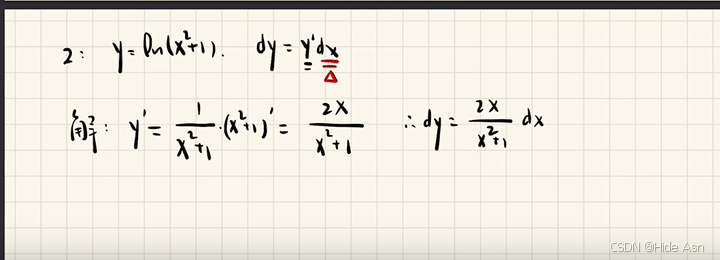 2: y=ln(x²+1). dy=y'dx
解: y'=1/(x²+1)·(x²+1)'=2x/(x²+1) ∴dy=2x/(x²+1) dx
CSDN @Hide Asn